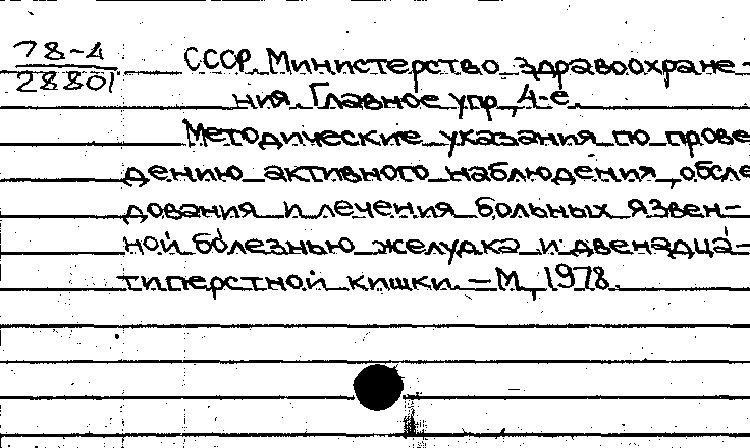 78-4
28801
СССР. Министерство здравоохране-
ния. Главное упр., 4-е.
Методические указания по прове
дению активного наблюдения, обсле
дования и лечения больных язвен-
ной болезнью желудка и двенадца-
типерстной кишки. - М., 1978.